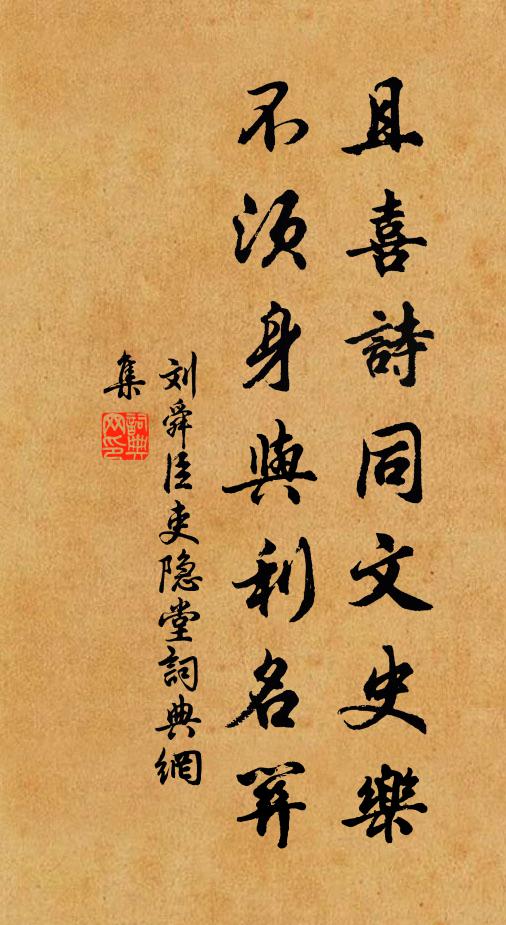 且喜詩同文史樂
不須身與利名算
刘舜臣吏隐堂詞典網
集
詞典網印